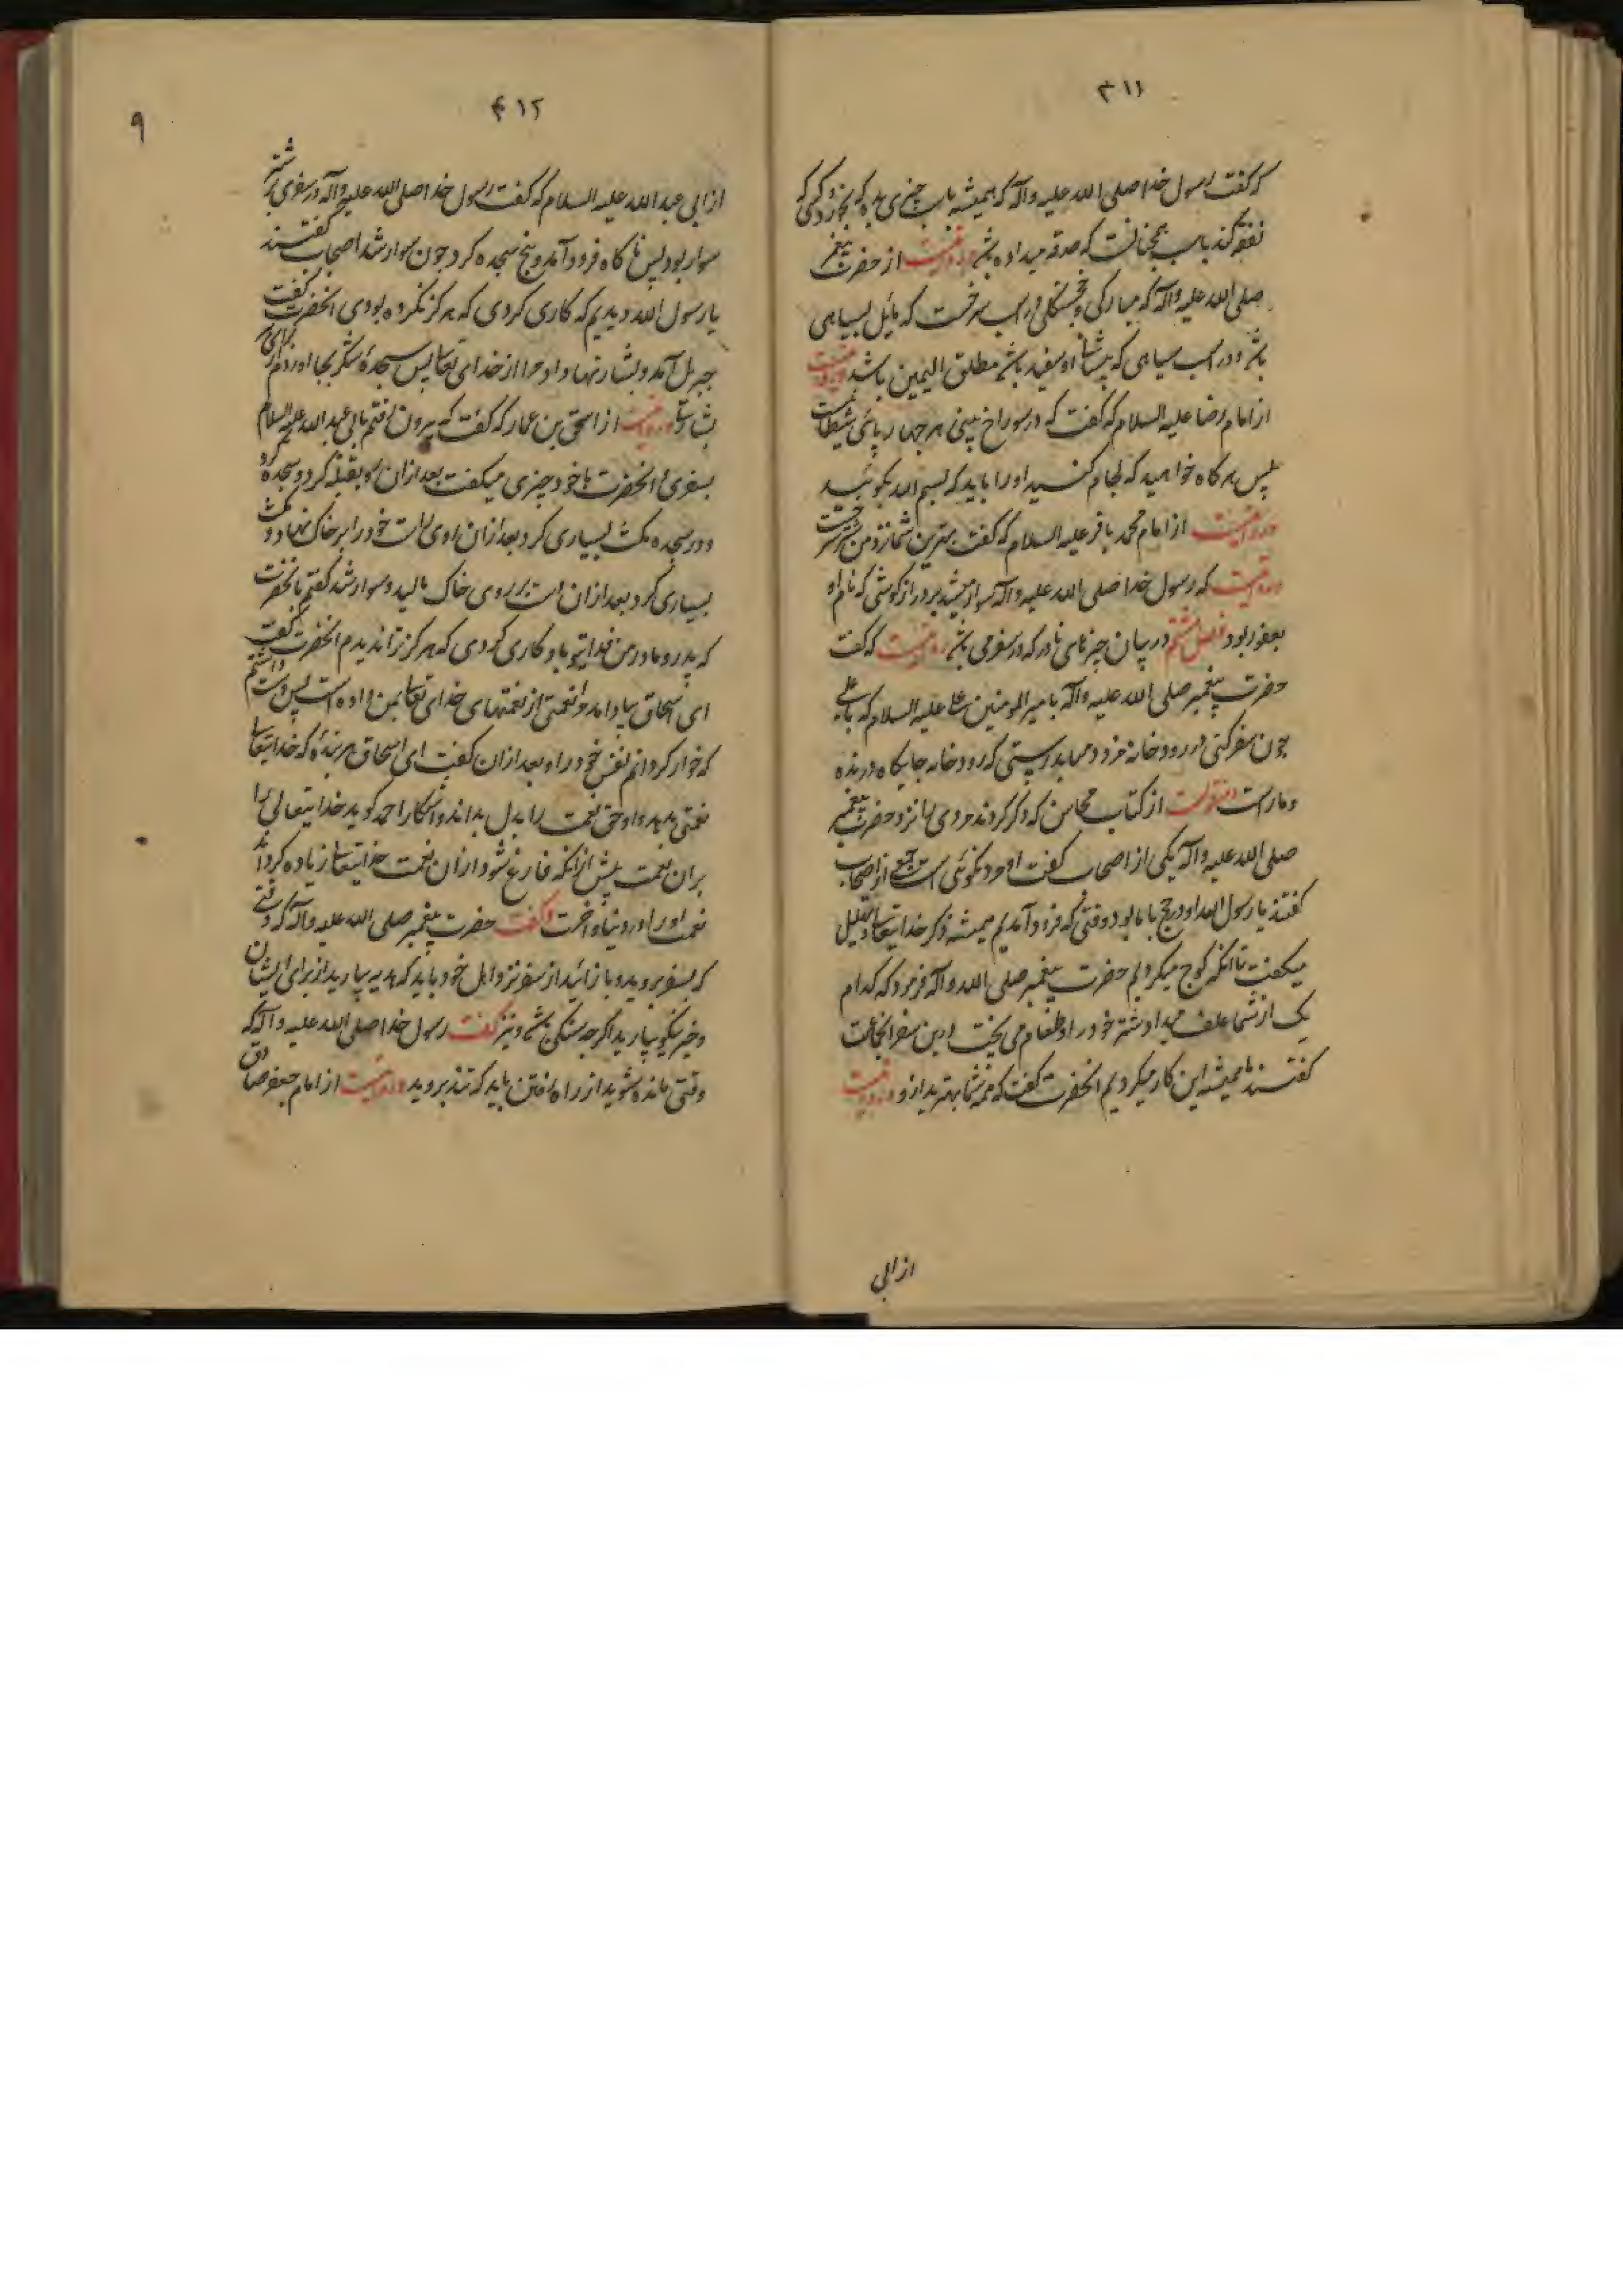 ۳۱۱
که گفت رسول خدا صلی الله علیه وآله که همیشه باسب چیزی بده که بخورد کسی که
نفقه کند باسب همچنانست که صدقه میداده باشد و روایتست از حضرت پیغمبر
صلی الله علیه وآله که مبارکی و خجستگی در اسب سرخست که مائل بسیاهی
باشد و در اسب سیاهی که پیشانی او سفید باشد مطلق الیمین باشد و روایتست
از امام رضا علیه السلام که گفت که در سوراخ بینی هر چهارپائی شیطانست
پس هر کاه خواهید که لجام کنید او را باید که بسم الله بگوئید
و روایتست از امام محمد باقر علیه السلام که گفت بهترین شما نزد من شتر سرخست
و روایتست که رسول خدا صلی الله علیه وآله سوار میشد بر درازگوشی که نام او
یعفور بود فصل هشتم در بیان چیزهای نادر که در سفر می باشد روایتست که گفت
حضرت پیغمبر صلی الله علیه وآله بامیرالمومنین علی علیه السلام که یا علی
چون سفر کنی در رودخانه فرود میا بدرستی که رودخانه جایکاه درنده
و مارست و منقولست از کتاب محاسن که ذکر کردند مردی را نزد حضرت پیغمبر
صلی الله علیه وآله یکی از اصحاب گفت او مرد نکوئی است جمعی از اصحاب
گفتند یا رسول الله او در حج با ما بود وقتی که فرود آمدیم همیشه ذکر خدایتعالی و تهلیل
میکفت تا آنکه کوچ میکردیم حضرت پیغمبر صلی الله وآله فرمود که کدام
یک از شما علف میداد شتر خود را و طعام می پخت درین سفر انجماعت
گفتند ما همیشه این کار میکردیم انحضرت گفت که همه شما بهترید از و و روایتست
از ابی
۳۱۲
۹
از ابی عبد الله علیه السلام که گفت رسول خدا صلی الله علیه وآله در سفری بر شتر
سوار بود پس ناکاه فرود آمد و پنج سجده کرد چون سوار شد اصحاب گفتند
یا رسول الله دیدیم که کاری کردی که هرگز نکرده بودی انحضرت گفت
جبریل آمد و بشارتها داد مرا از خدای تعالی پس سجدهٔ شکر بجا اوردم برای هر
بشارتی و روایتست از اسحق بن عمار که گفت که بیرون رفتم با ابی عبد الله علیه السلام
بسفری و انحضرت با خود چیزی میکفت بعد ازان رو بقبله کرد و سجده کرد
و در سجده مکث بسیاری کرد بعد ازان روی راست خود را بر خاک نهاد و مکث
بسیاری کرد بعد ازان دست بر روی خاک مالید و سوار شد گفتم بانحضرت
که پدر و مادر من فدای تو باد کاری کردی که هرگز ترا ندیدم انحضرت گفت
ای اسحاق بیاد آمد مرا نعمتی از نعمتهای خدای تعالی بمن داده است پس دوست داشتم
که خوار کردانم نفس خود را و بعد ازان گفت ای اسحاق هر بندهٔ که خدایتعالی
نعمتی بدهد و او حق نعمت را بدل بداند و آشکارا حمد کوید خدایتعالی را
بران نعمت پیش ازانکه فارغ شود ازان نعمت خدایتعالی زیاده کرداند
نعمت او را در دنیا و آخرت و گفت حضرت پیغمبر صلی الله علیه وآله که وقتی
که بسفر بروید و باز آئید از سفر نزد اهل خود باید که هدیه بیارید از برای ایشان
و خیر نیکو بیارید اکرچه سنکی باشد و نیز گفت رسول خدا صلی الله علیه وآله که
وقتی مانده شوید از راه رفتن باید که تند بروید و روایتست از امام جعفر صادق